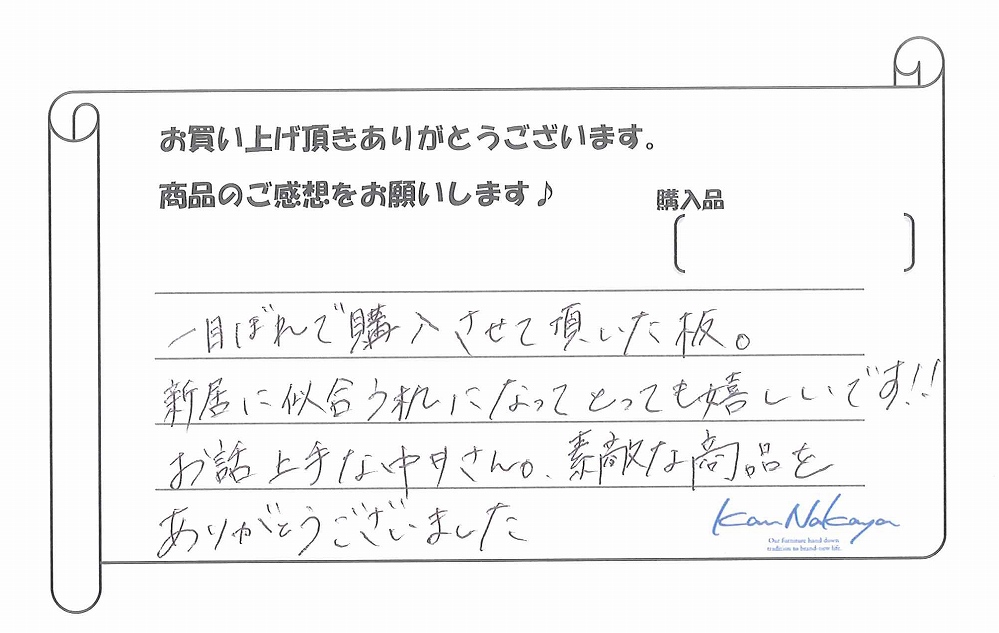 お買い上げ頂きありがとうございます。
商品のご感想をお願いします♪
購入品
一目ぼれで購入させて頂いた板。
新居に似合う机になってとっても嬉しいです!!
お話上手な中月さん。素敵な商品を
ありがとうございました
Kan Nakaya
Our furniture hand down
tradition to brand-new life.